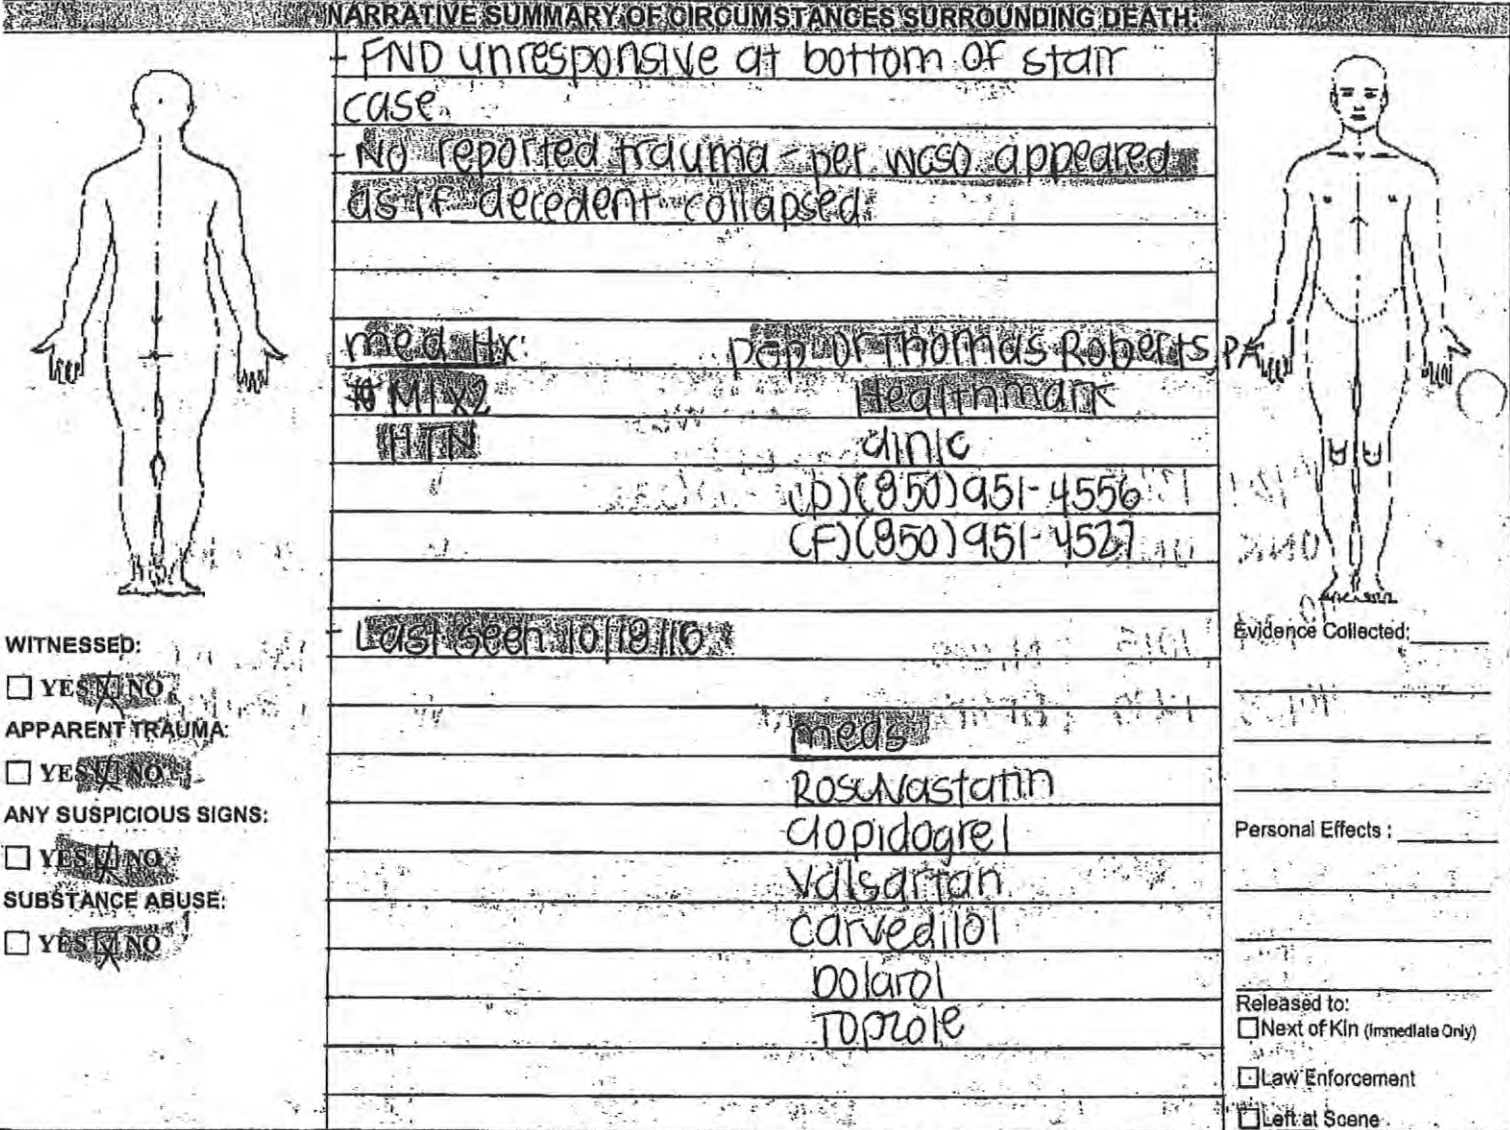 NARRATIVE SUMMARY OF CIRCUMSTANCES SURROUNDING DEATH:
- FND unresponsive at bottom of stair
case.
- No reported trauma - per WCSO appeared
as if decedent collapsed.
med Hx:
MI x2
HTN
pcp Dr Thomas Roberts PA
Healthmark
clinic
(P)(850)951-4556
(F)(850)951-4527
- Last seen 10/18/16
meds
Rosuvastatin
Clopidogrel
Valsartan
Carvedilol
Dolarol
Toprole
WITNESSED:
☐ YES ☒ NO
APPARENT TRAUMA:
☐ YES ☒ NO
ANY SUSPICIOUS SIGNS:
☐ YES ☒ NO
SUBSTANCE ABUSE:
☐ YES ☒ NO
Evidence Collected:
Personal Effects :
Released to:
☐ Next of Kin (Immediate Only)
☐ Law Enforcement
☐ Left at Scene